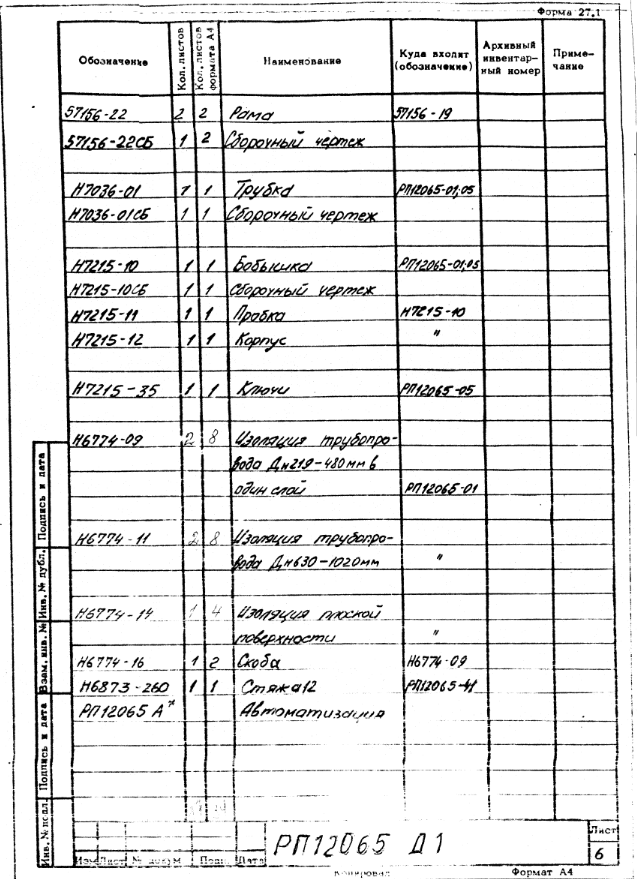 Форма 27.1
Обозначение Кол. листов Кол. листов формата А4 Наименование Куда входит (обозначение) Архивный инвентарный номер Примечание
57156-22 2 2 Рама 57156-19
57156-22СБ 1 2 Сборочный чертеж
Н7036-01 1 1 Трубка РП12065-01;05
Н7036-01СБ 1 1 Сборочный чертеж
Н7215-10 1 1 Бобышка РП12065-01;05
Н7215-10СБ 1 1 Сборочный чертеж
Н7215-11 1 1 Пробка Н7215-10
Н7215-12 1 1 Корпус "
Н7215-35 1 1 Ключи РП12065-05
Н6774-09 2 8 Изоляция трубопро-
вода Дн219-480мм в
один слой РП12065-01
Н6774-11 2 8 Изоляция трубопро-
вода Дн630-1020мм "
Н6774-14 1 4 Изоляция плоской
поверхности "
Н6774-16 1 2 Скоба Н6774-09
Н6873-260 1 1 Стяжка12
РП12065 А* Автоматизация
Инв. № подл. Подпись и дата Взам. инв. № Инв. № дубл. Подпись и дата
Изм Лист № докум Подп. Дата
РП12065 Д1
Лист
6
Копировал Формат А4